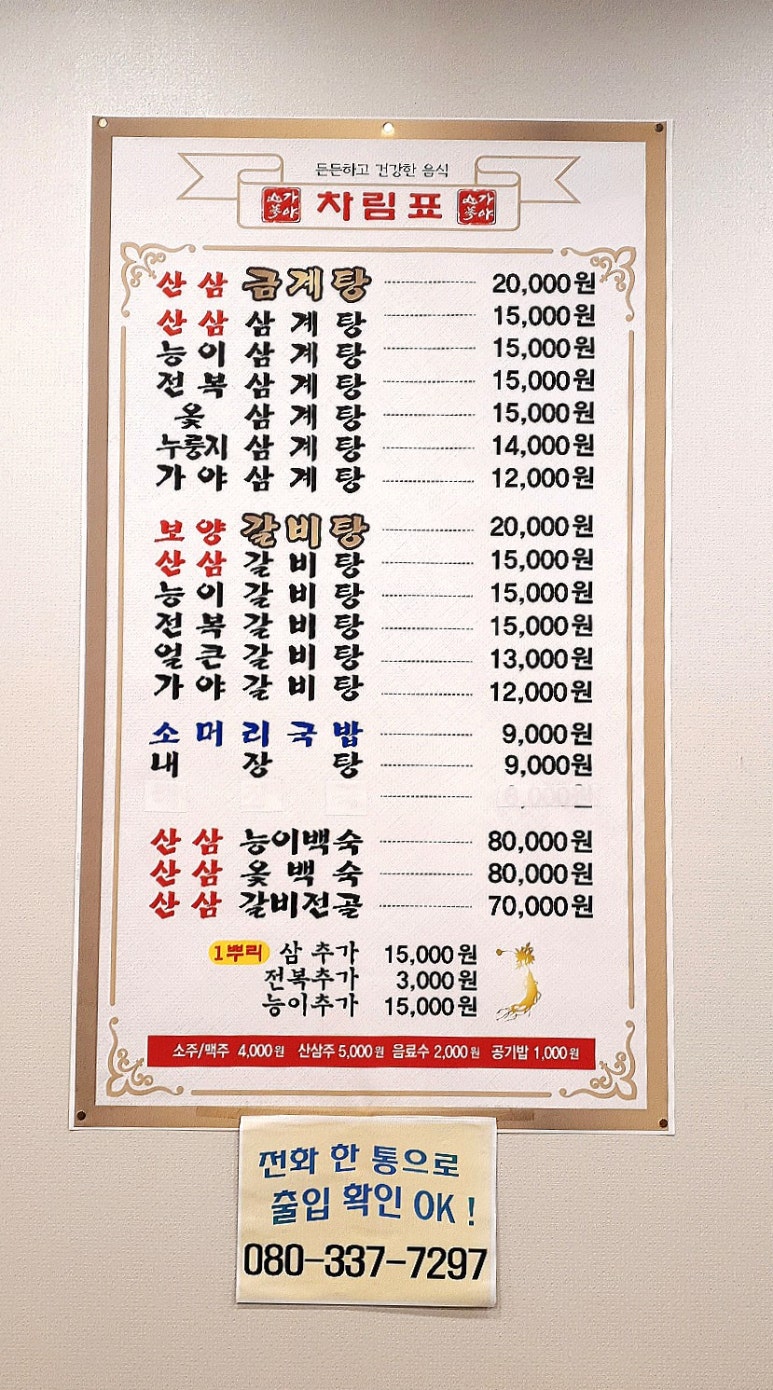 든든하고 건강한 음식
차림표
산삼 금계탕 20,000원
산삼 삼계탕 15,000원
능이 삼계탕 15,000원
전복 삼계탕 15,000원
옻 삼계탕 15,000원
누룽지 삼계탕 14,000원
가야 삼계탕 12,000원
보양 갈비탕 20,000원
산삼 갈비탕 15,000원
능이 갈비탕 15,000원
전복 갈비탕 15,000원
얼큰 갈비탕 13,000원
가야 갈비탕 12,000원
소머리국밥 9,000원
내장탕 9,000원
산삼 능이백숙 80,000원
산삼 옻백숙 80,000원
산삼 갈비전골 70,000원
1뿌리 삼 추가 15,000원
전복추가 3,000원
능이추가 15,000원
소주/맥주 4,000원 산삼주 5,000원 음료수 2,000원 공기밥 1,000원
전화 한 통으로
출입 확인 OK !
080-337-7297